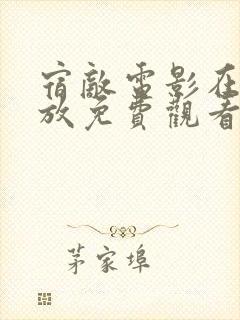 宿敵電影在
放免費觀看
茅家埠